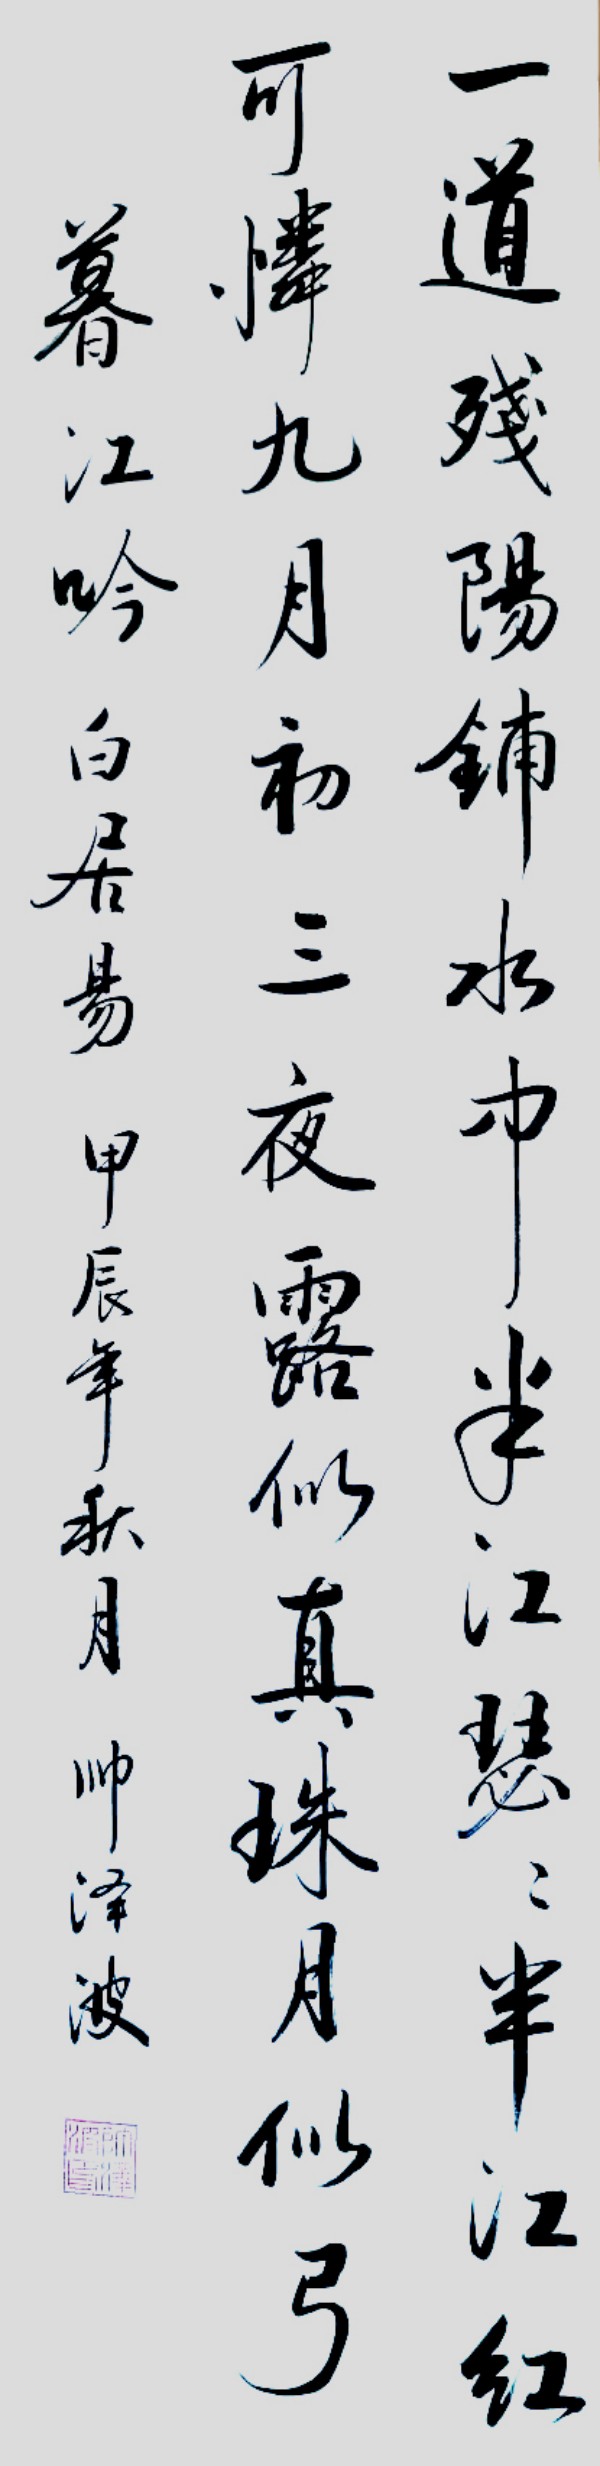 一道殘陽鋪水中半江瑟〻半江紅
可憐九月初三夜露似真珠月似弓
暮江吟 白居易 甲辰年秋月 帅泽波